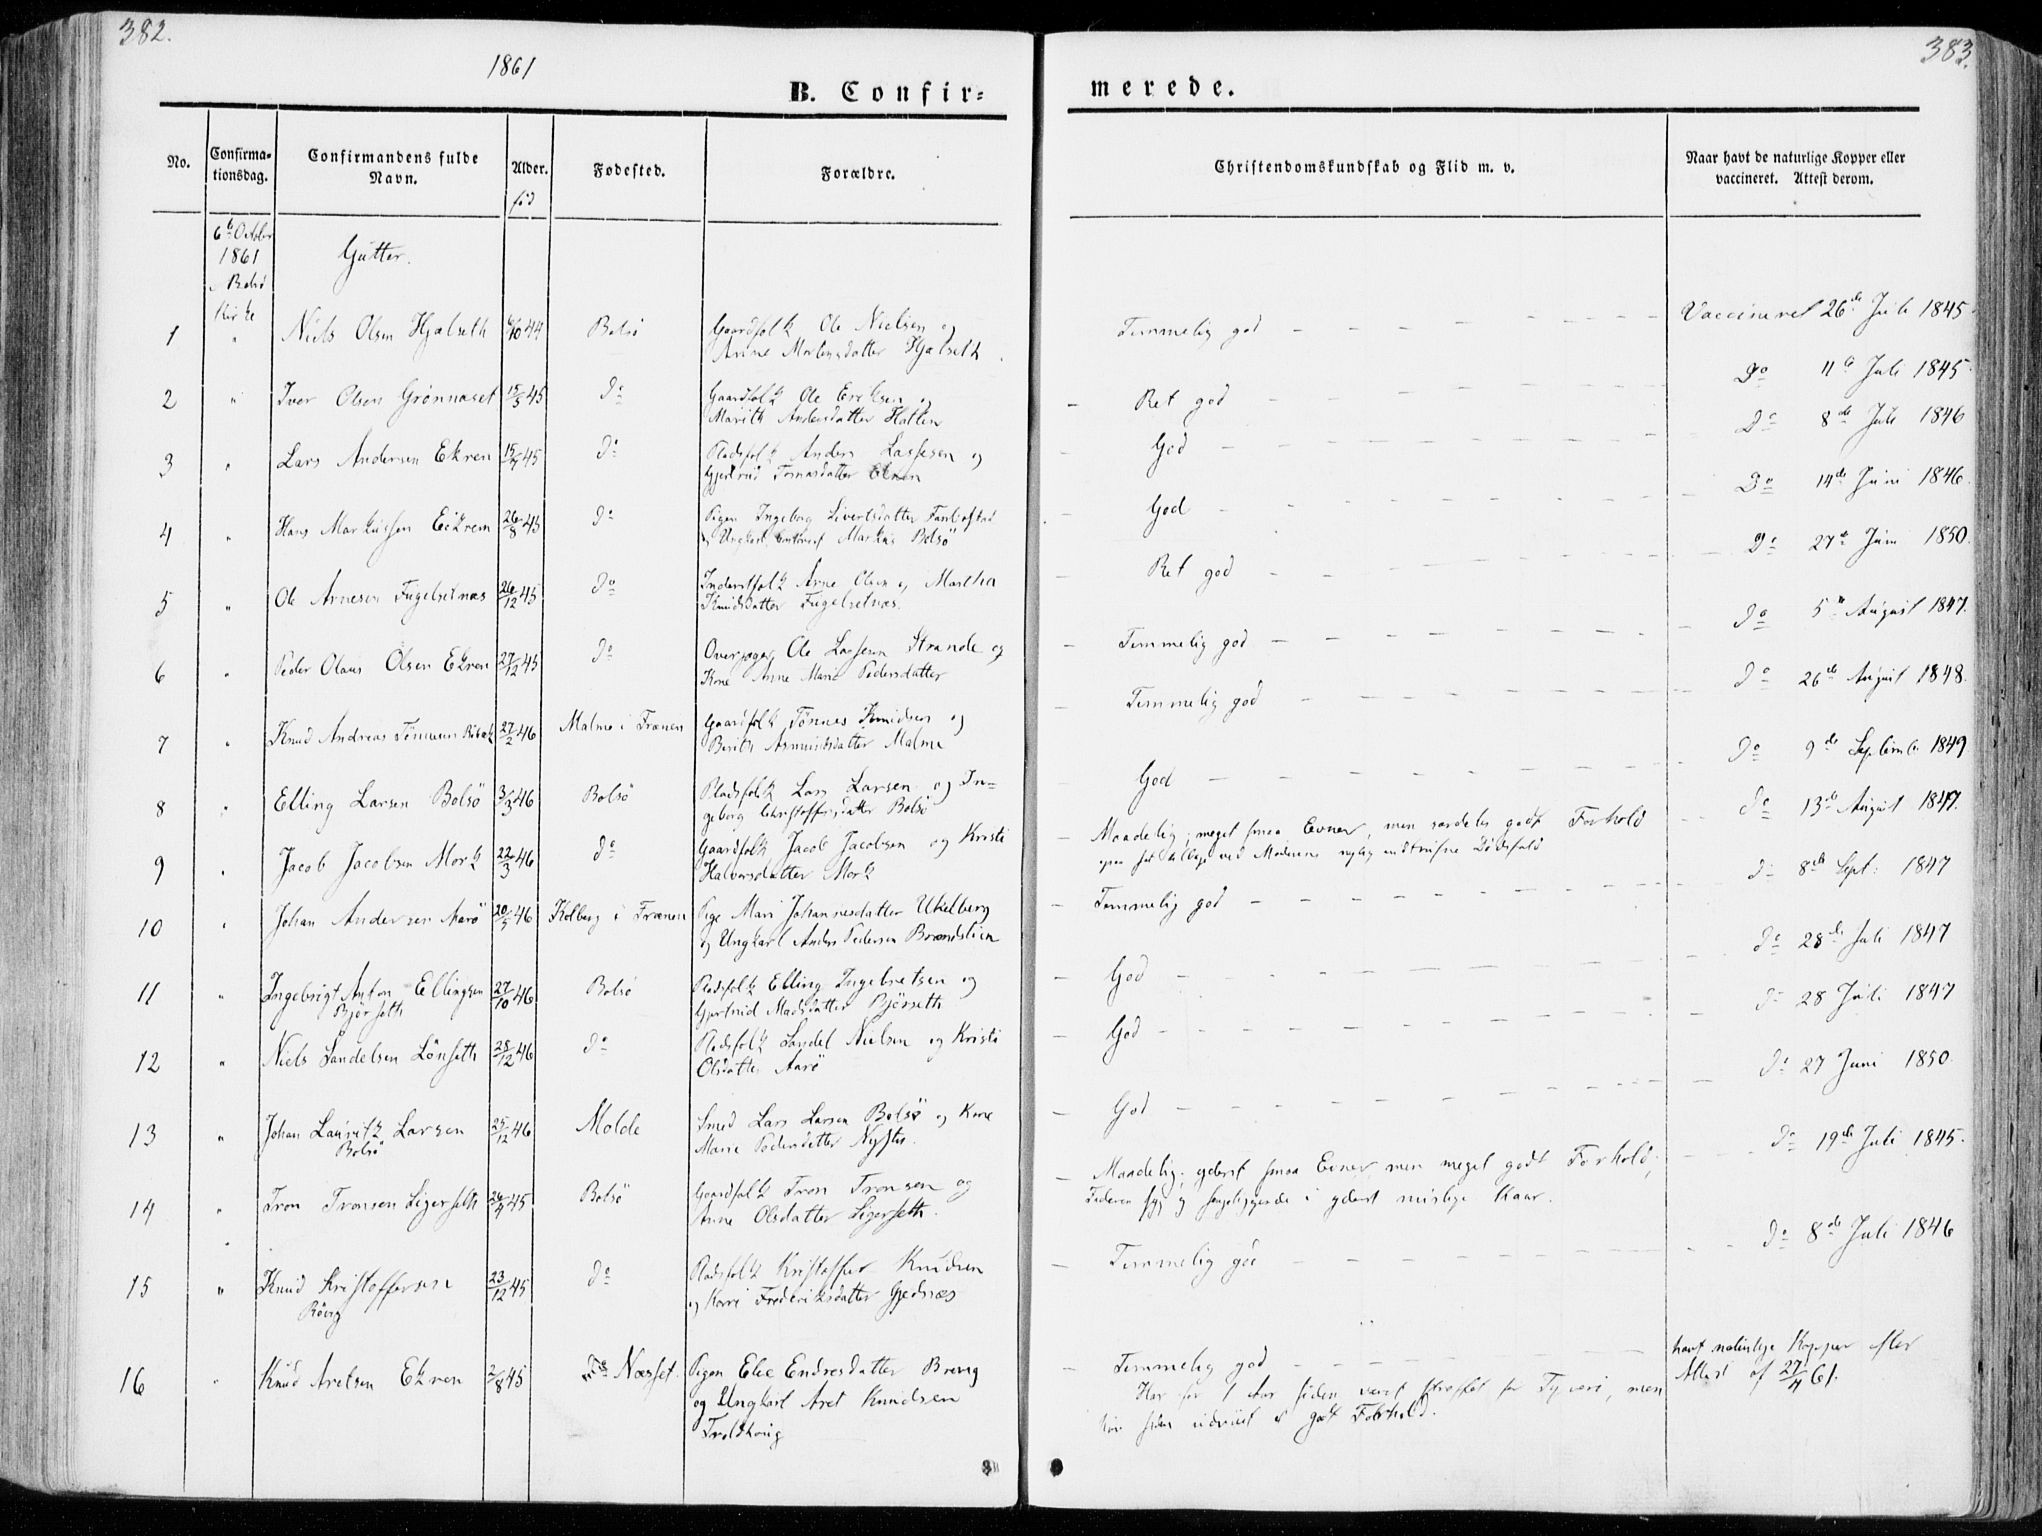 382.
383.
1861
B. Confirmerede.
No.
Confirmationsdag.
Confirmandens fulde Navn.
Alder.
fød
Fødested.
Forældre.
Christendomskundskab og Flid m. v.
Naar havt de naturlige Kopper eller vaccineret. Attest derom.
6te October
1861
i Bolsø
Kirke
Gutter.
1 " Niels Olsen Hjelseth 44 Bolsø Gaardfolk Ole Nielsen og
Anne Mortensdatter Hjelseth
Temmelig god Vaccineret 26de Juli 1845
2 " Iver Olsen Grønnæset 15/5 45 Do Gaardfolk Ole Eriksen og
Marith Andersdatter Hatlen
Ret god Do 11te Juli 1845
3 " Lars Andersen Ekren 45 Do Pladsfolk Anders Lassesen og
Gjertrud Tomasdatter Ekren
God Do 8de Juli 1846
4 " Hans Markussen Eikrem 26/8 45 Do Pigen Ingeborg Sivertsdatter
og Ungkarl Markus Bolsø
God Do 14de Juni 1846
5 " Ole Arnesen Fugelsetnæs 26/12 45 Do Inderstfolk Arne Olsen og Martha
Knudsdatter Fugelsetnæs.
Ret god Do 27de Juni 1850.
6 " Peder Olaus Olsen Ekren 27/12 45 Do Overjæger Ole Lassesen Strande og
Kone Anne Marie Pedersdatter
Temmelig god Do 5te August 1847.
7 " Knud Andreas Tønnesen 27/2 46 Malme i Frænen Gaardfolk Tønnes Knudsen og
Berith Asmundsdatter Malme
Temmelig god Do 26de August 1848.
8 " Elling Larsen Bolsø 3/3 46 Bolsø Pladsfolk Lars Larsen og In-
geborg Christoffersdatter Bolsø
God Do 9de Septemb. 1849
9 " Jacob Jacobsen Mork 22/3 46 Do Gaardfolk Jacob Jacobsen og Kristi
Halvorsdatter Mork
Maadelig; meget smaa Evner, men særdeles godt Forhold
ved Moderens nylig indtrufne Dødsfald
Do 13de August 1847.
10 " Johan Andersen Aarø 20/5 46 Kolberg i Frænen Pige Mari Johannesdatter Ukelberg
og Ungkarl Anders Pedersen Brændslien
Temmelig god Do 8de Sept: 1847
11 " Ingebrigt Anton Ellingsen
Bjørseth
27/10 46 Bolsø Pladsfolk Elling Ingebretsen og
Gjertrud Madsdatter Bjørseth
God Do 28de Juli 1847
12 " Niels Sandelsen Lønseth 28/12 46 Do Pladsfolk Sandel Nielsen og Kristi
Olsdatter Aarø
God Do 28 Juli 1847
13 " Johan Lauritz Larsen
Bolsø
25/12 46 Molde Smed Lars Larsen Bolsø og Kone
Marie Pedersdatter
God Do 27 Juni 1850.
14 " Tron Tronsen Ligerseth 26/4 45 Bolsø Gaardfolk Tron Tronsen og
Anne Olsdatter Ligerseth.
Maadelig; yderst smaa Evner men meget godt Forhold;
Faderen syg og sengeliggende i yderst mislige Kaar.
Do 19de Juli 1845.
15 " Knud Kristoffersen
Røvig
23/12 45 Do Pladsfolk Kristoffer Knudsen
og Karri Frederiksdatter Gjednæs
Temmelig god Do 8de Juli 1846
16 " Knud Aretsen Ekren 2/8 45 Næsset. Pigen Elie Endresdatter Brevig
og Ungkarl Aret Knudsen
Troldhaug
Temmelig god
Har for 1 Aar siden været straffet for Tyveri, men
har siden udviist et godt Forhold.
havt naturlige Kopper efter
Attest af 27/4 61.